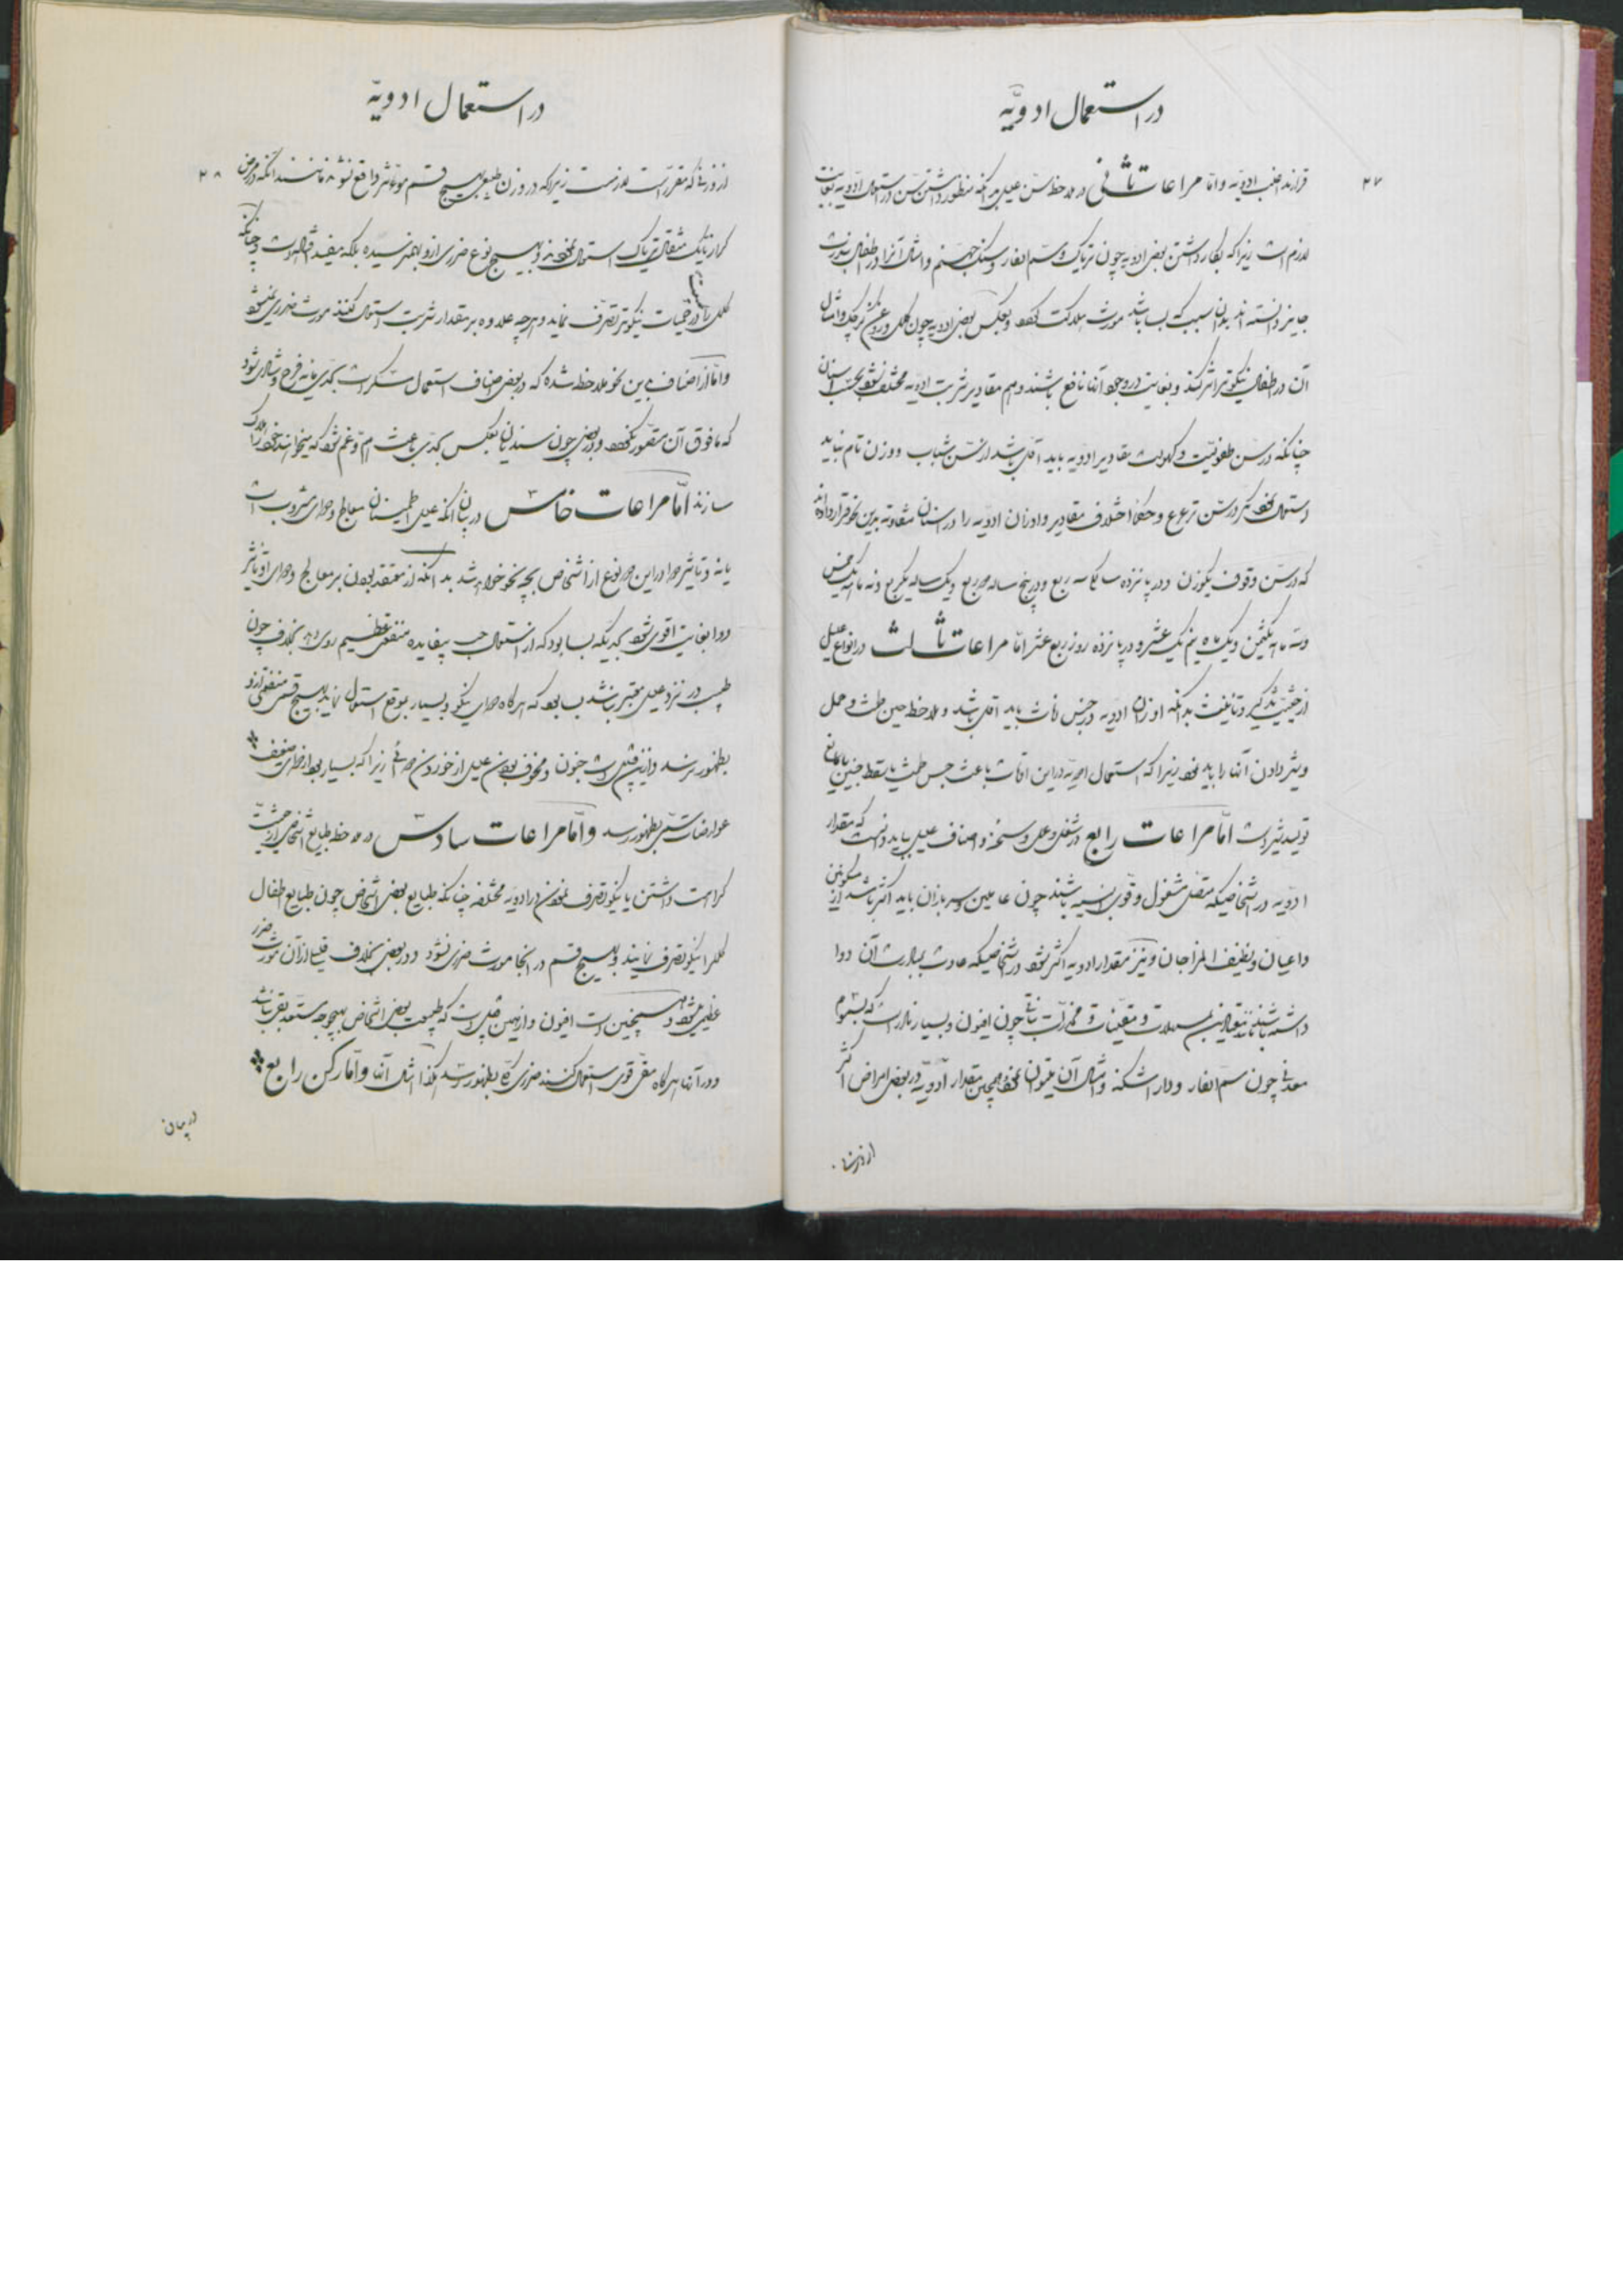 در استعمال ادویّه
۲۷
قرارند اغلب ادویه و امّا مراعات ثانی در ملاحظه سنّ علیل بدانکه منظور داشتن سن در استعمال ادویه بغایت
لازم است زیرا که بکار داشتن بعض ادویه چون تریاک و سم الفار و سنک جهنم و امثال آنرا در طفال بندرت
جایز دانسته اند بدان سبب که بسا باشد مورث هلاکت کردد و بعکس بعض ادویه چون کلمل و روغن کرچک و امثال
آن در طفال نیکوتر اثر کند و بغایت در وجود آنها نافع باشند و هم مقادیر شربت ادویه مختلف شود بحسب اسنان
چنانکه در سن طفولیت و کهولت مقادیر ادویه باید اقل باشد از سنّ شباب و وزن تام نباید
استعمال نمود مکر در سن ترعرع و حکما اختلاف مقادیر و اوزان ادویه را در اسنان متفاوته بدین نحو قرار داده اند
که در سن وقوف یکوزن و در پانزده سالگی سه ربع و در پنج ساله دو ربع و یک ساله یکربع و نه ماهه یک خمس
و سه ماهه یکثمن و یک ماه نیم یک عشر و در پانزده روز ربع عشر امّا مراعات ثالث در انواع علیل
از حیثیت تذکیر و تانیث بدانکه اوزان ادویه در جنس اناث باید اقل باشد و ملاحظه حین طمث و حمل
و شیر دادن آنها را باید نمود زیرا که استعمال ادویه در این اوقات باعث حبس طمث یا سقط جنین یا مانع
تولید شیر است امّا مراعات رابع در شغل و عمل و سخنه و اصناف علیل باید دانست که مقدار
ادویه در اشخاصیکه متصل مشغول و قوی بنیه باشند چون عاملین و سربازان باید اکثر باشد از متمکنین
و اعیان و نظیف المزاجان و نیز مقدار ادویه اکثر شود در اشخاصیکه عادت بمبادرت آن دوا
داشته باشند مانند معتادین بمسهلات و مقیئات و مخدرات نباتی چون افیون و بسیار نادر است که بسموم
معدنی چون سم الفار و دار اشکنه و امثال آن میتوان نمود همچنین مقدار ادویه در بعض امراض اکثر
از وزن
در استعمال ادویّه
۲۸
از وزنی که مقرر است لازمست زیرا که در وزن طبیعی بهیچ قسم موثر واقع نشود مانند آنکه در مرض
کزاز تا یک مثقال تریاک استعمال نموده نیز و بهیچ نوع ضرری از او بظهور نرسیده بلکه مفید افتاده است و چنانکه
کلمل در حمیات نیکوتر تصرف نماید و هر چه علاوه بر مقدار شربت استعمال کنند مورث ضرری نمیشود
و امّا از اصناف بدین نحو ملاحظه شده که در بعض اصناف استعمال مسکرات بحدی مایه فرح و شادی شود
که مافوق آن متصور نکردد و در بعضی چون سندیان بعکس بحدی باعث همّ و غم شود که میخواهند خود را هلاک
سازند امّا مراعات خامس در بیان آنکه علیل اطمینان بمعالج و دوای مشروب است
یا نه و تاثیر دوا در این دو نوع از اشخاص بچه نحو خواهد شد بدانکه از معتقد بودن بر معالج و دوای او تاثیر
دوا بغایت اقوی شود بحدیکه بسا بود که از استعمال حب بیفایده منفعتی عظیم روی دهد بخلاف چون
طبیب در نزد علیل معتبر نباشد بسا بود که هر گاه دوای نیکو و بسیار بموقع استعمال نماید بهیچ قسمی منفعتی از او
بظهور نرسد و از این قبیل است جنون و مخوف بودن علیل از خوردن دوائی زیرا که بسیار بود از دوای ضعیف
عوارضات شتی بظهور رسد و امّا مراعات سادس در ملاحظه طبایع اشخاص از حیثیت
کراهت داشتن یا نیکو تصرف نمودن در ادویه مختلفه چنانکه طبایع بعض اشخاص چون طبایع اطفال
کلمل را نیکو تصرف نمایند و بهیچ قسم در آنجا مورث ضرری نشود و در بعضی بخلاف قلیلی از آن مورث ضرر
عظیمی میشود و همچنین است افیون و از همین قبیل است که طبیعت بعض اشخاص بهیچوجه مستعد بقی نباشد
و در آنها هر گاه مقی قوی استعمال کنند ضرری کلی بظهور رسد و هکذا امثال آنها و امّا رکن رابع
در بیان